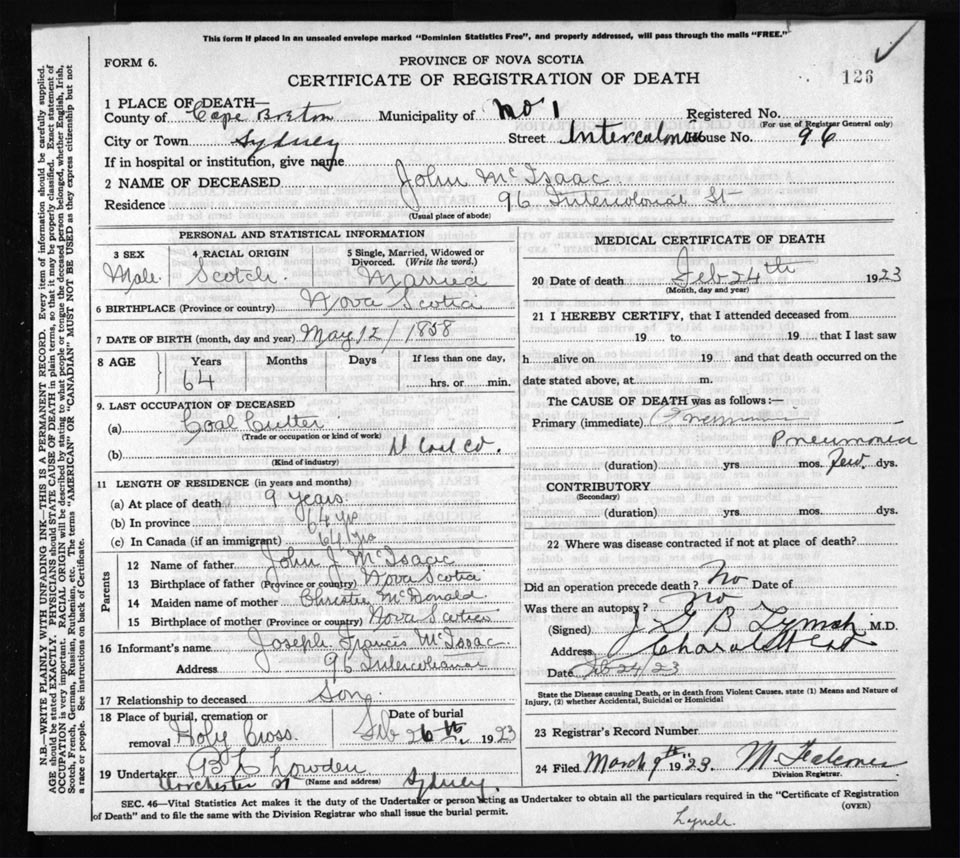 This form if placed in an unsealed envelope marked "Dominion Statistics Free", and properly addressed, will pass through the mails "FREE."
FORM 6.
PROVINCE OF NOVA SCOTIA
CERTIFICATE OF REGISTRATION OF DEATH
126
1 PLACE OF DEATH—
County of Cape Breton Municipality of No 1 Registered No.
(For use of Registrar General only)
City or Town Sydney Street Intercolonial House No. 96
If in hospital or institution, give name
2 NAME OF DECEASED John McIsaac
Residence 96 Intercolonial St
(Usual place of abode)
PERSONAL AND STATISTICAL INFORMATION
3 SEX 4 RACIAL ORIGIN 5 Single, Married, Widowed or Divorced. (Write the word.)
Male Scotch Married
6 BIRTHPLACE (Province or country) Nova Scotia
7 DATE OF BIRTH (month, day and year) May 12/1858
8 AGE Years Months Days If less than one day,
64 hrs. or min.
9. LAST OCCUPATION OF DECEASED
(a) Coal Cutter
(Trade or occupation or kind of work)
(b) Coal Co.
(Kind of industry)
11 LENGTH OF RESIDENCE (in years and months)
(a) At place of death 9 years
(b) In province 64 yrs
(c) In Canada (if an immigrant) 64 yrs
Parents
12 Name of father John J. McIsaac
13 Birthplace of father (Province or country) Nova Scotia
14 Maiden name of mother Christie McDonald
15 Birthplace of mother (Province or country) Nova Scotia
16 Informant's name Joseph Francis McIsaac
Address 96 Intercolonial
17 Relationship to deceased Son
18 Place of burial, cremation or removal Holy Cross Date of burial Feb 26th, 1923
19 Undertaker Lowden
(Name and address)
Dorchester St Sydney
MEDICAL CERTIFICATE OF DEATH
20 Date of death Feb 24th 1923
(Month, day and year)
21 I HEREBY CERTIFY, that I attended deceased from
19 to 19 that I last saw
h alive on 19 and that death occurred on the
date stated above, at m.
The CAUSE OF DEATH was as follows :—
Primary (immediate)
Pneumonia
(duration) yrs mos. few dys.
CONTRIBUTORY
(Secondary)
(duration) yrs. mos. dys.
22 Where was disease contracted if not at place of death?
Did an operation precede death? No Date of
Was there an autopsy? No
(Signed) J G B Lynch M.D.
Address
Date Feb 24/23
State the Disease causing Death, or in death from Violent Causes, state (1) Means and Nature of Injury, (2) whether Accidental, Suicidal or Homicidal
23 Registrar's Record Number
24 Filed March 9th 1923 M. Falconer
Division Registrar.
SEC. 46—Vital Statistics Act makes it the duty of the Undertaker or person acting as Undertaker to obtain all the particulars required in the "Certificate of Registration
of Death" and to file the same with the Division Registrar who shall issue the burial permit.
(OVER)
Lynch.
N.B.—WRITE PLAINLY WITH UNFADING INK—THIS IS A PERMANENT RECORD. Every item of information should be carefully supplied.
AGE should be stated EXACTLY. PHYSICIANS should STATE CAUSE OF DEATH in plain terms, so that it may be properly classified. Exact statement of
OCCUPATION is very important. RACIAL ORIGIN will be described by stating to what people or tongue the deceased person belonged, whether English, Irish,
Scotch, French, German, Russian, Ruthenian, etc. The terms "AMERICAN" OR "CANADIAN" MUST NOT BE USED as they express citizenship but not
a race or people. See instructions on back of Certificate.